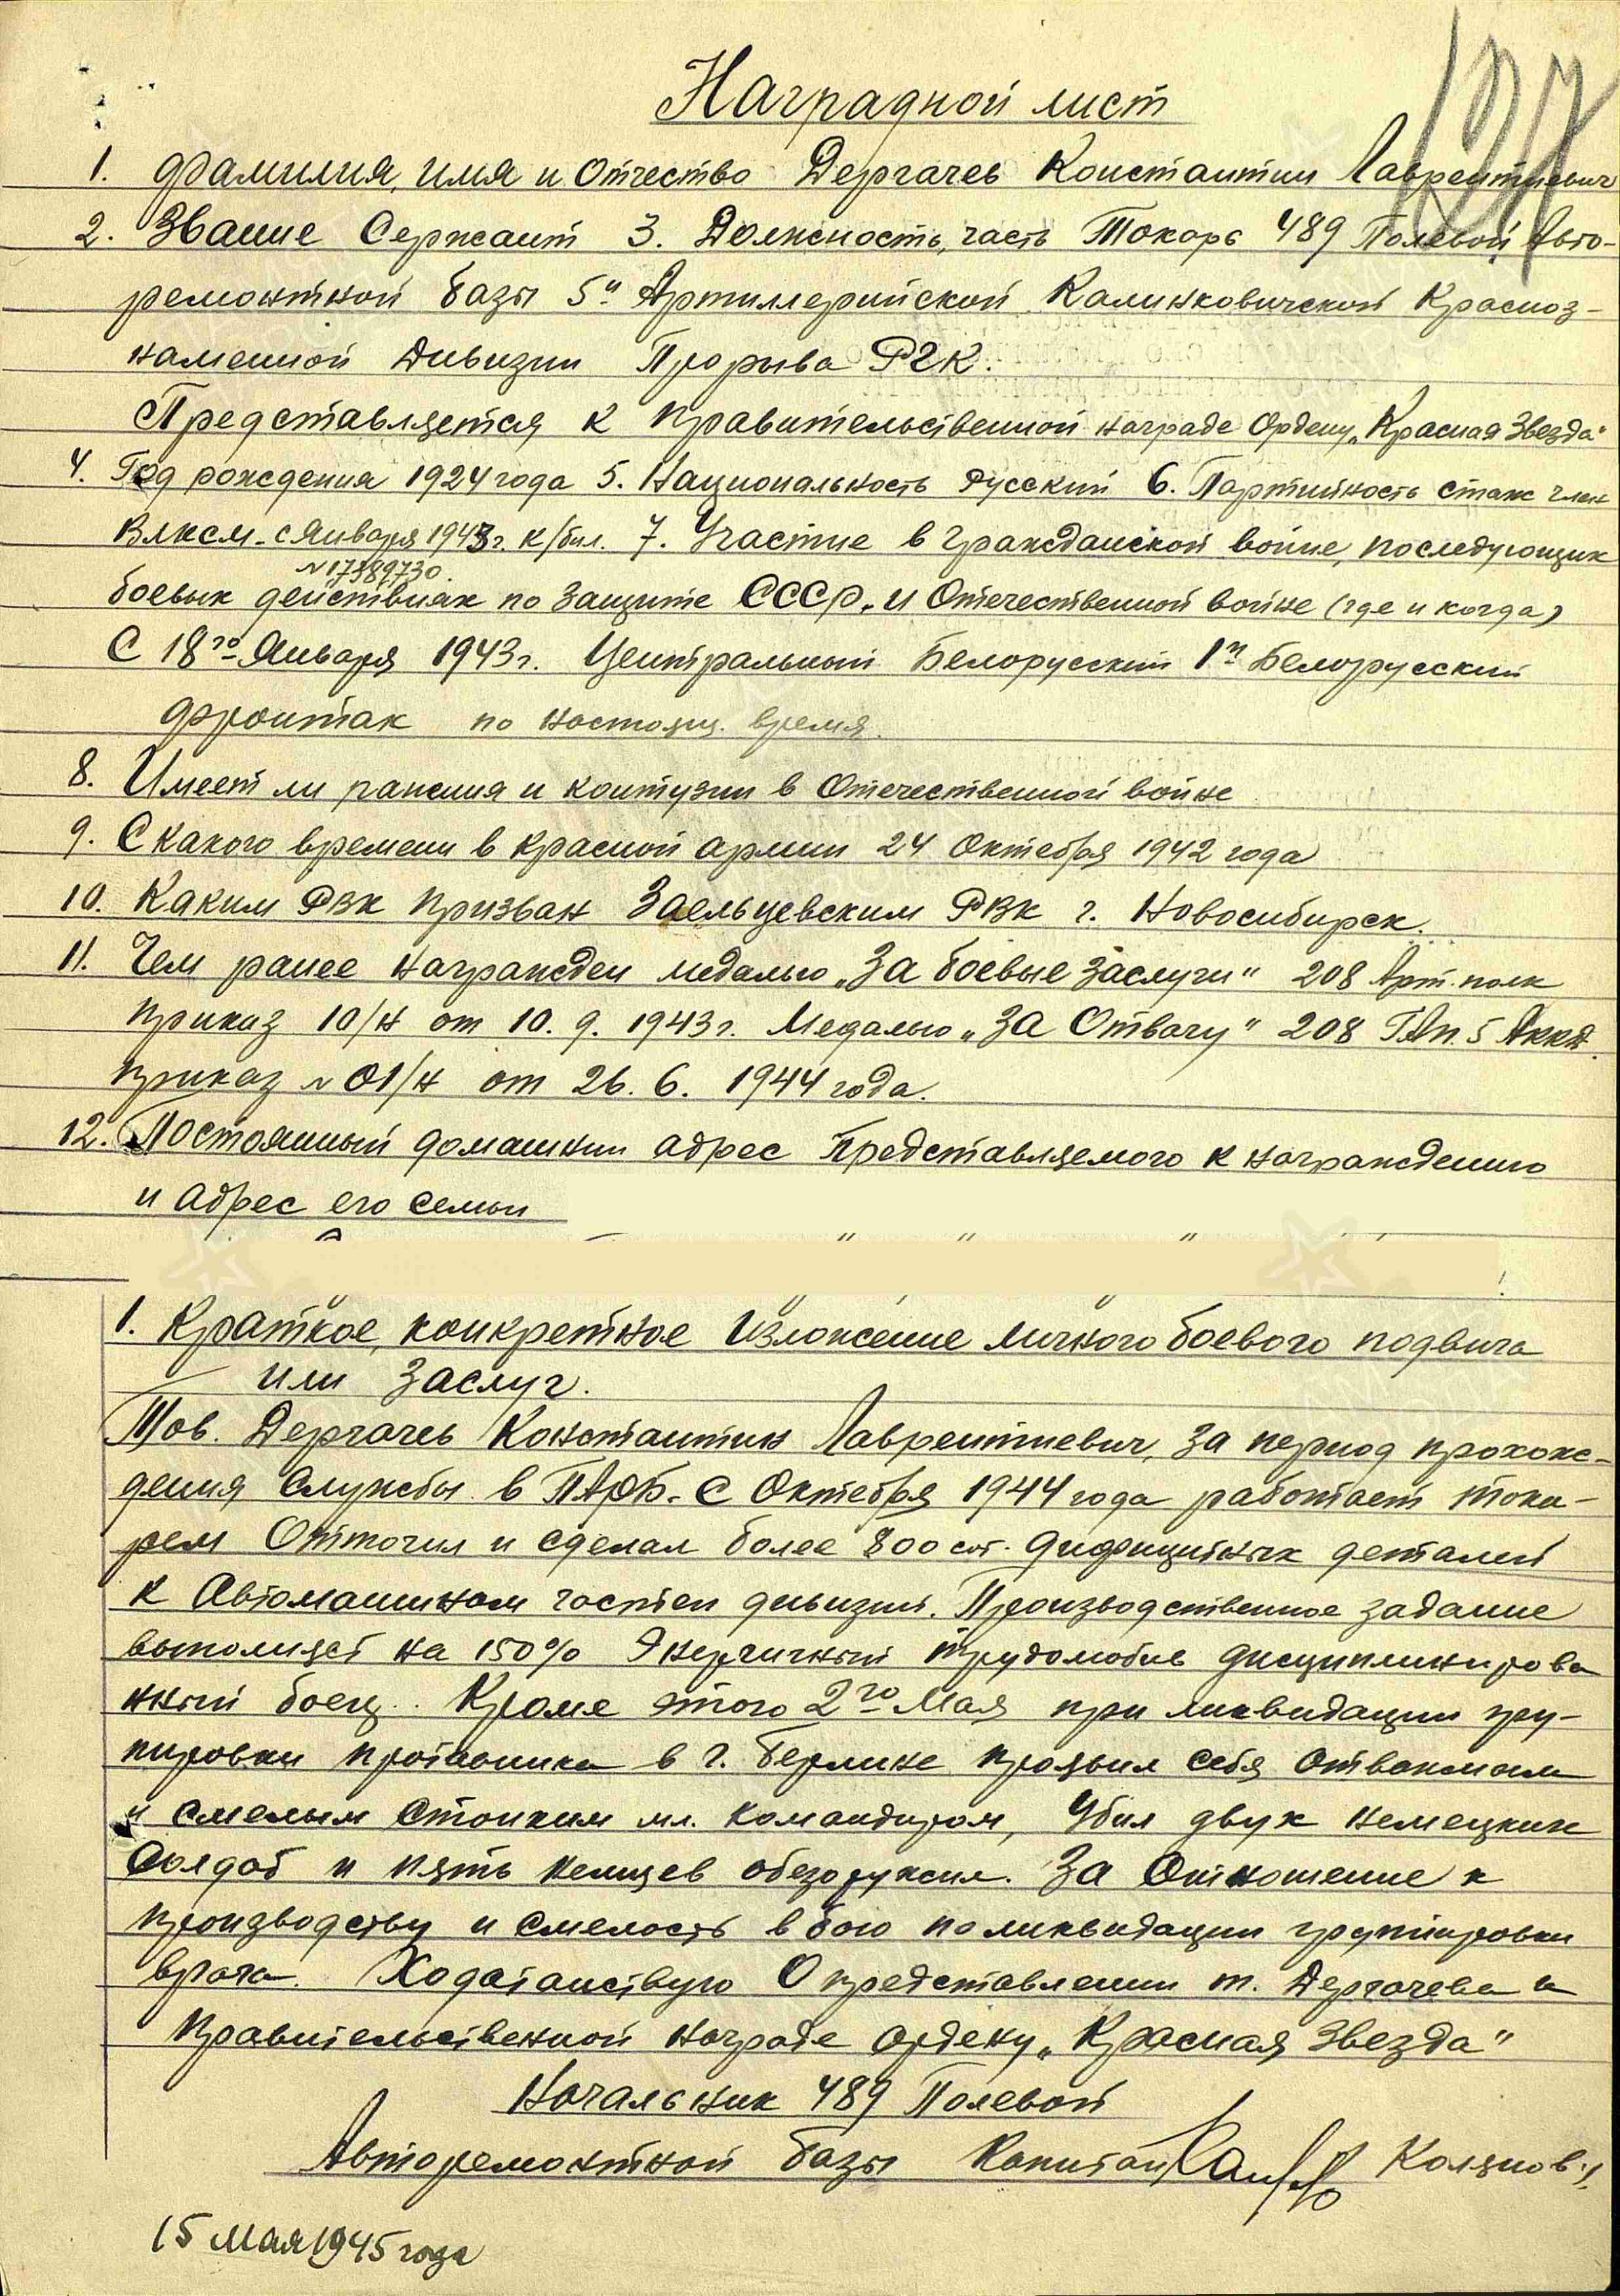 127
Наградной лист
1. Фамилия, имя и Отчество Дергачев Константин Лаврентиевич
2. Звание Сержант 3. Должность, часть Токарь 489 Полевой Авто-
ремонтной базы 5й Артиллерийской Калинковичской Красноз-
наменной Дивизии Прорыва РГК.
Представляется к Правительственной награде Ордену „Красная Звезда"
4. Год рождения 1924 года 5. Национальность русский 6. Партийность стаж член
ВЛКСМ - с Января 1943 г. к/бил. 7. Участие в гражданской войне, последующих
N 17389730.
боевых действиях по защите СССР. и Отечественной войне (где и когда)
С 18го Января 1943 г. Центральный Белорусский 1й Белорусский
фронтах по настоящ. время.
8. Имеет ли ранения и контузии в Отечественной войне
9. С какого времени в Красной армии 24 Октебря 1942 года
10. Каким РВК призван Заельцевским РВК г. Новосибирск.
11. Чем ранее награжден медалью „За боевые заслуги" 208 Арт. полк
Приказ 10/н от 10. 9. 1943 г. Медалью „За Отвагу" 208 ГАп. 5 АККД.
Приказ N 01/н от 26. 6. 1944 года.
12. Постоянный домашнии адрес Представляемого к награждению
и адрес его семьи
1. Краткое, конкретное изложение личного боевого подвига
или заслуг.
Тов. Дергачев Константин Лаврентиевич, за период прохож-
дения Службы в ПАРБ - с Октебря 1944 года работает тока-
рем Отточил и сделал более 800 дифицитных деталей
к Автомашинам частей дивизии. Производственное задание
выполняет на 150% Энергичный трудолюбив дисциплинирова
нный боец. Кроме этого 2го Мая при ликвидации гру-
пировки противника в г. Берлине проявил себя отважным
и смелым Стоиким мл. командиром, Убил двух немецких
Солдат и пять немцев обезоружил. За Отношение к
производству и смелость в бою по ликвидации группировки
врага. Ходатаиствую О представлении т. Дергачева к
Правительственной награде ордену „Красная Звезда"
Начальник 489 Полевой
Авторемонтной базы Капитан Колцнов
15 Мая 1945 года